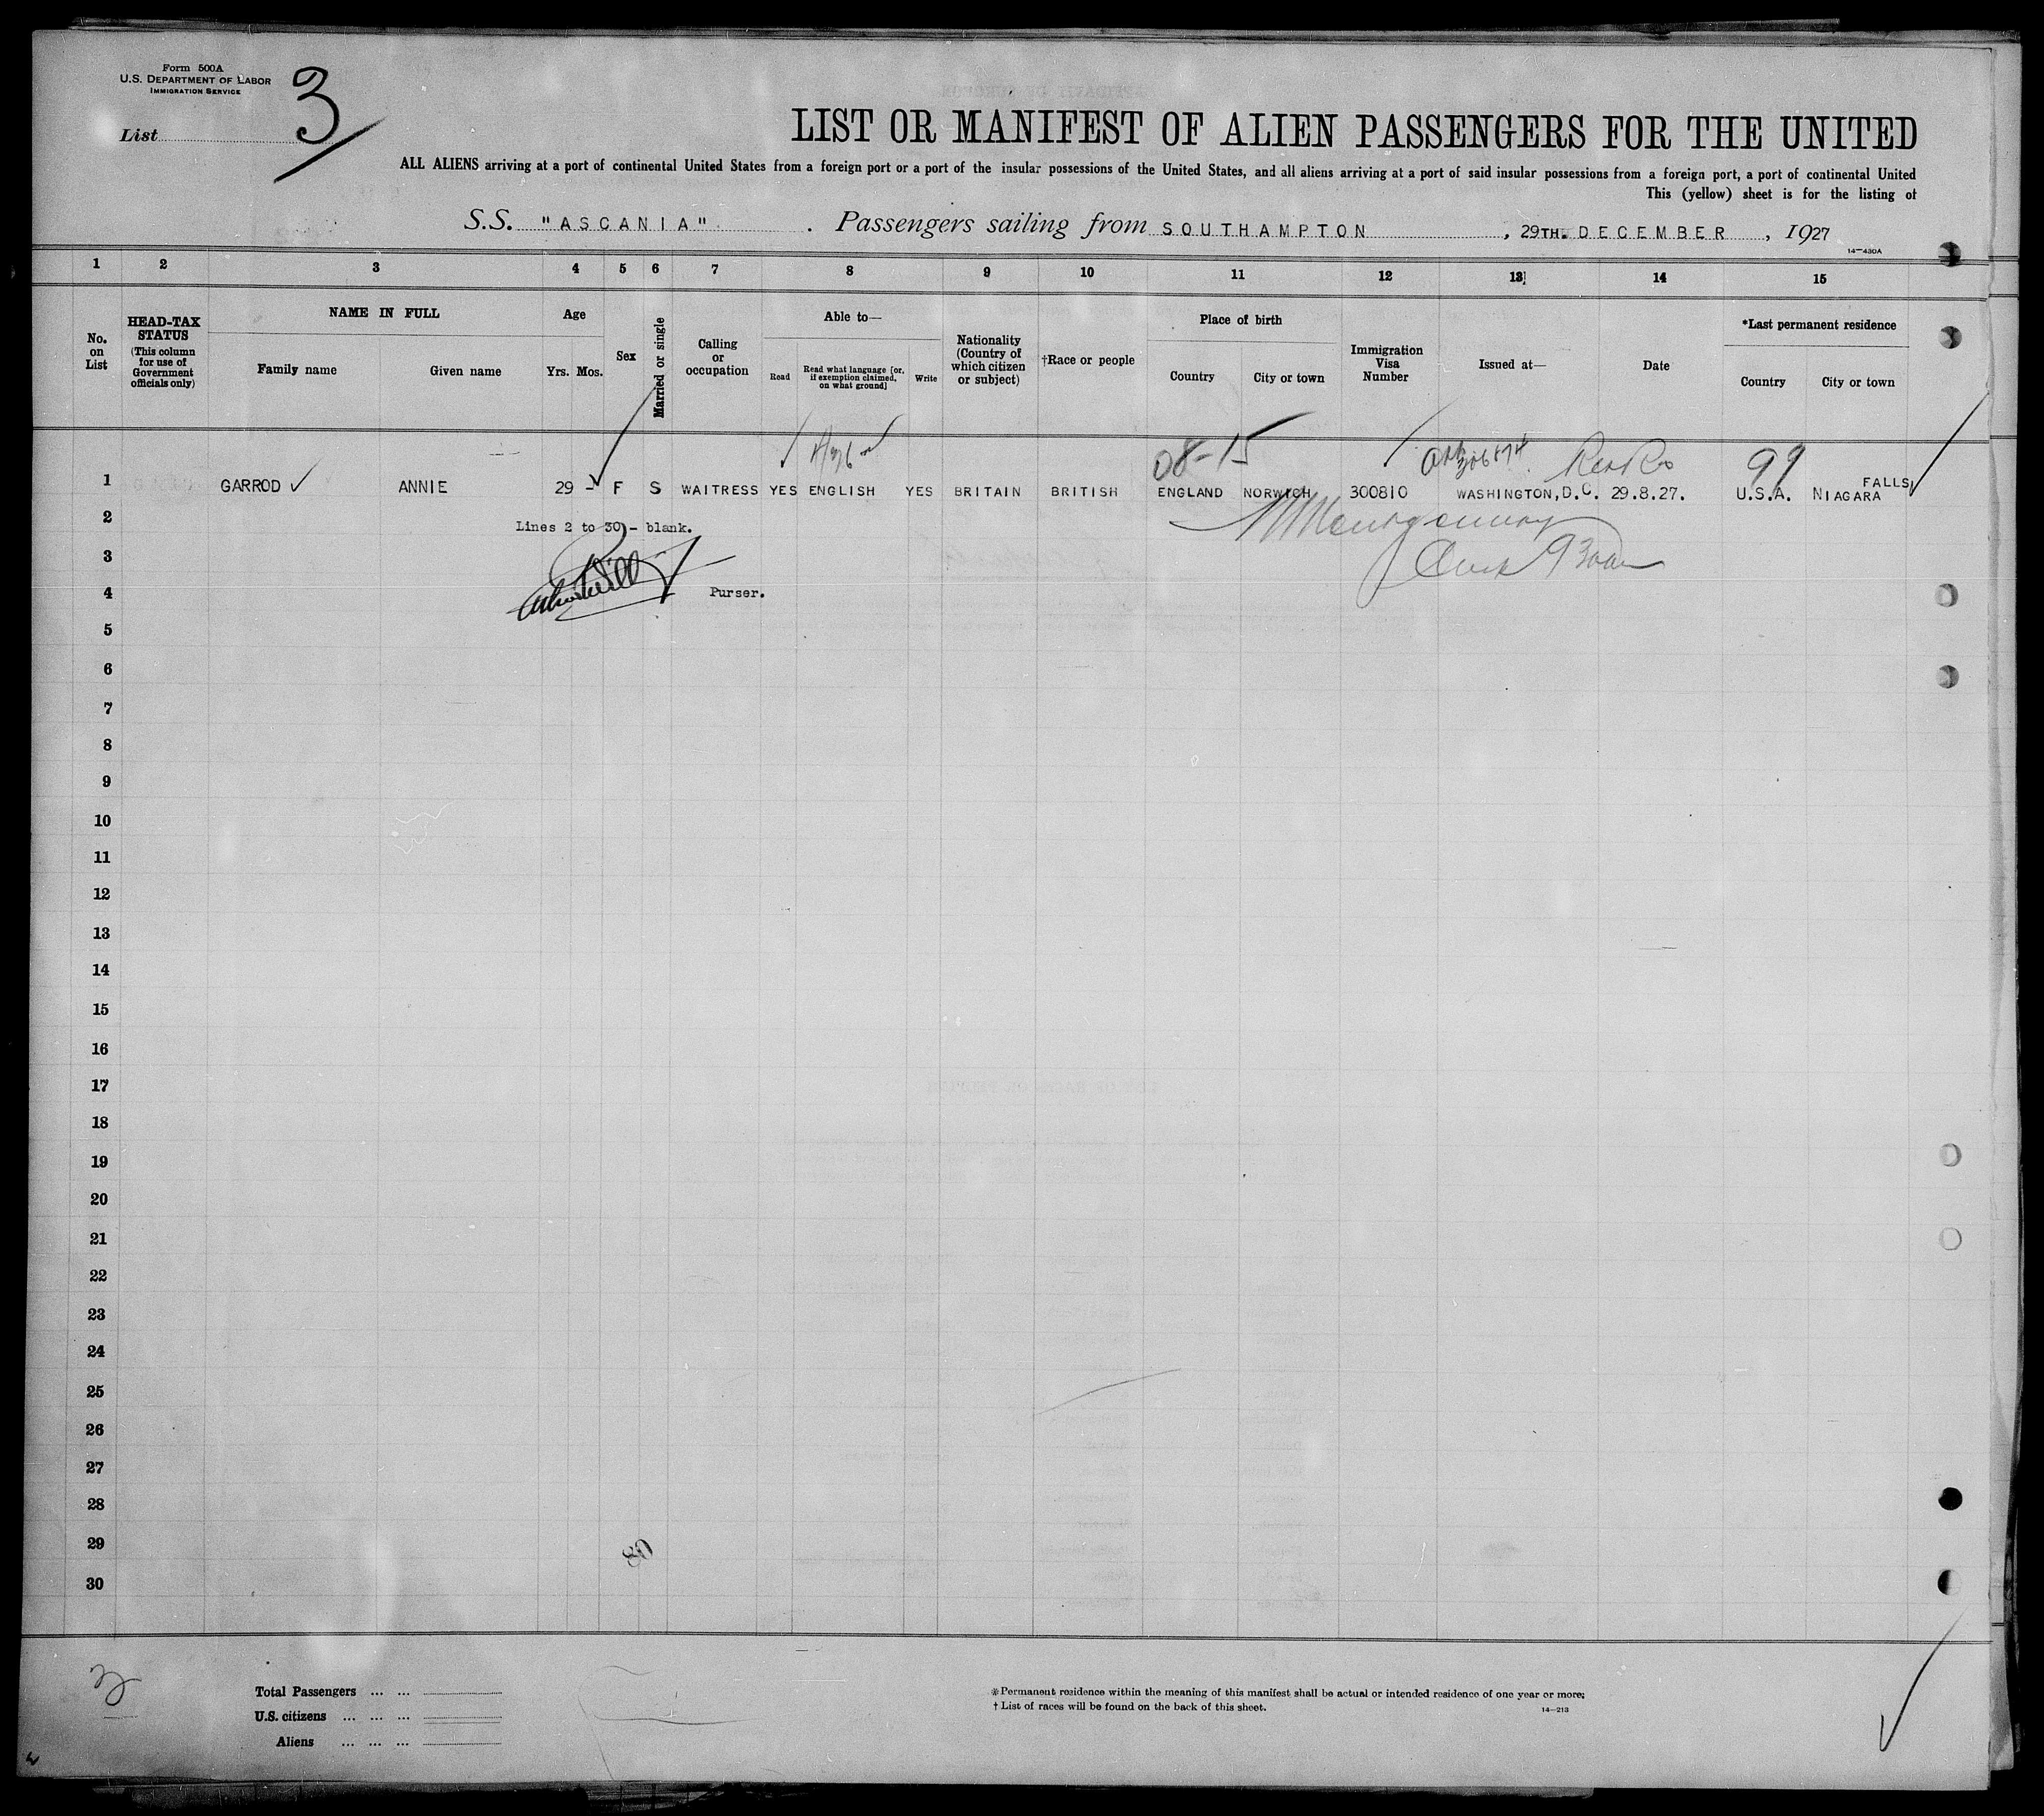 Form 500A
U.S. DEPARTMENT OF LABOR
IMMIGRATION SERVICE
List 3
LIST OR MANIFEST OF ALIEN PASSENGERS FOR THE UNITED
ALL ALIENS arriving at a port of continental United States from a foreign port or a port of the insular possessions of the United States, and all aliens arriving at a port of said insular possessions from a foreign port, a port of continental United
This (yellow) sheet is for the listing of
S.S. "ASCANIA". Passengers sailing from SOUTHAMPTON, 29TH. DECEMBER, 1927
14—430A
1 2 3 4 5 6 7 8 9 10 11 12 13 14 15
No. on List
HEAD-TAX STATUS
(This column for use of Government officials only)
NAME IN FULL
Family name Given name
Age
Yrs. Mos.
Sex
Married or single
Calling or occupation
Able to—
Read
Read what language [or, if exemption claimed, on what ground]
Write
Nationality (Country of which citizen or subject)
†Race or people
Place of birth
Country City or town
Immigration Visa Number
Issued at—
Date
*Last permanent residence
Country City or town
08-15 99
1 GARROD ANNIE 29 - F S WAITRESS YES ENGLISH YES BRITAIN BRITISH ENGLAND NORWICH 300810 WASHINGTON, D.C. 29.8.27. U.S.A. NIAGARA FALLS
2 Lines 2 to 30 - blank.
3
4 Purser.
5
6
7
8
9
10
11
12
13
14
15
16
17
18
19
20
21
22
23
24
25
26
27
28
29
30
80
3
Total Passengers ... ...
U.S. citizens ... ... ...
Aliens ... ... ...
*Permanent residence within the meaning of this manifest shall be actual or intended residence of one year or more;
† List of races will be found on the back of this sheet.
14—213